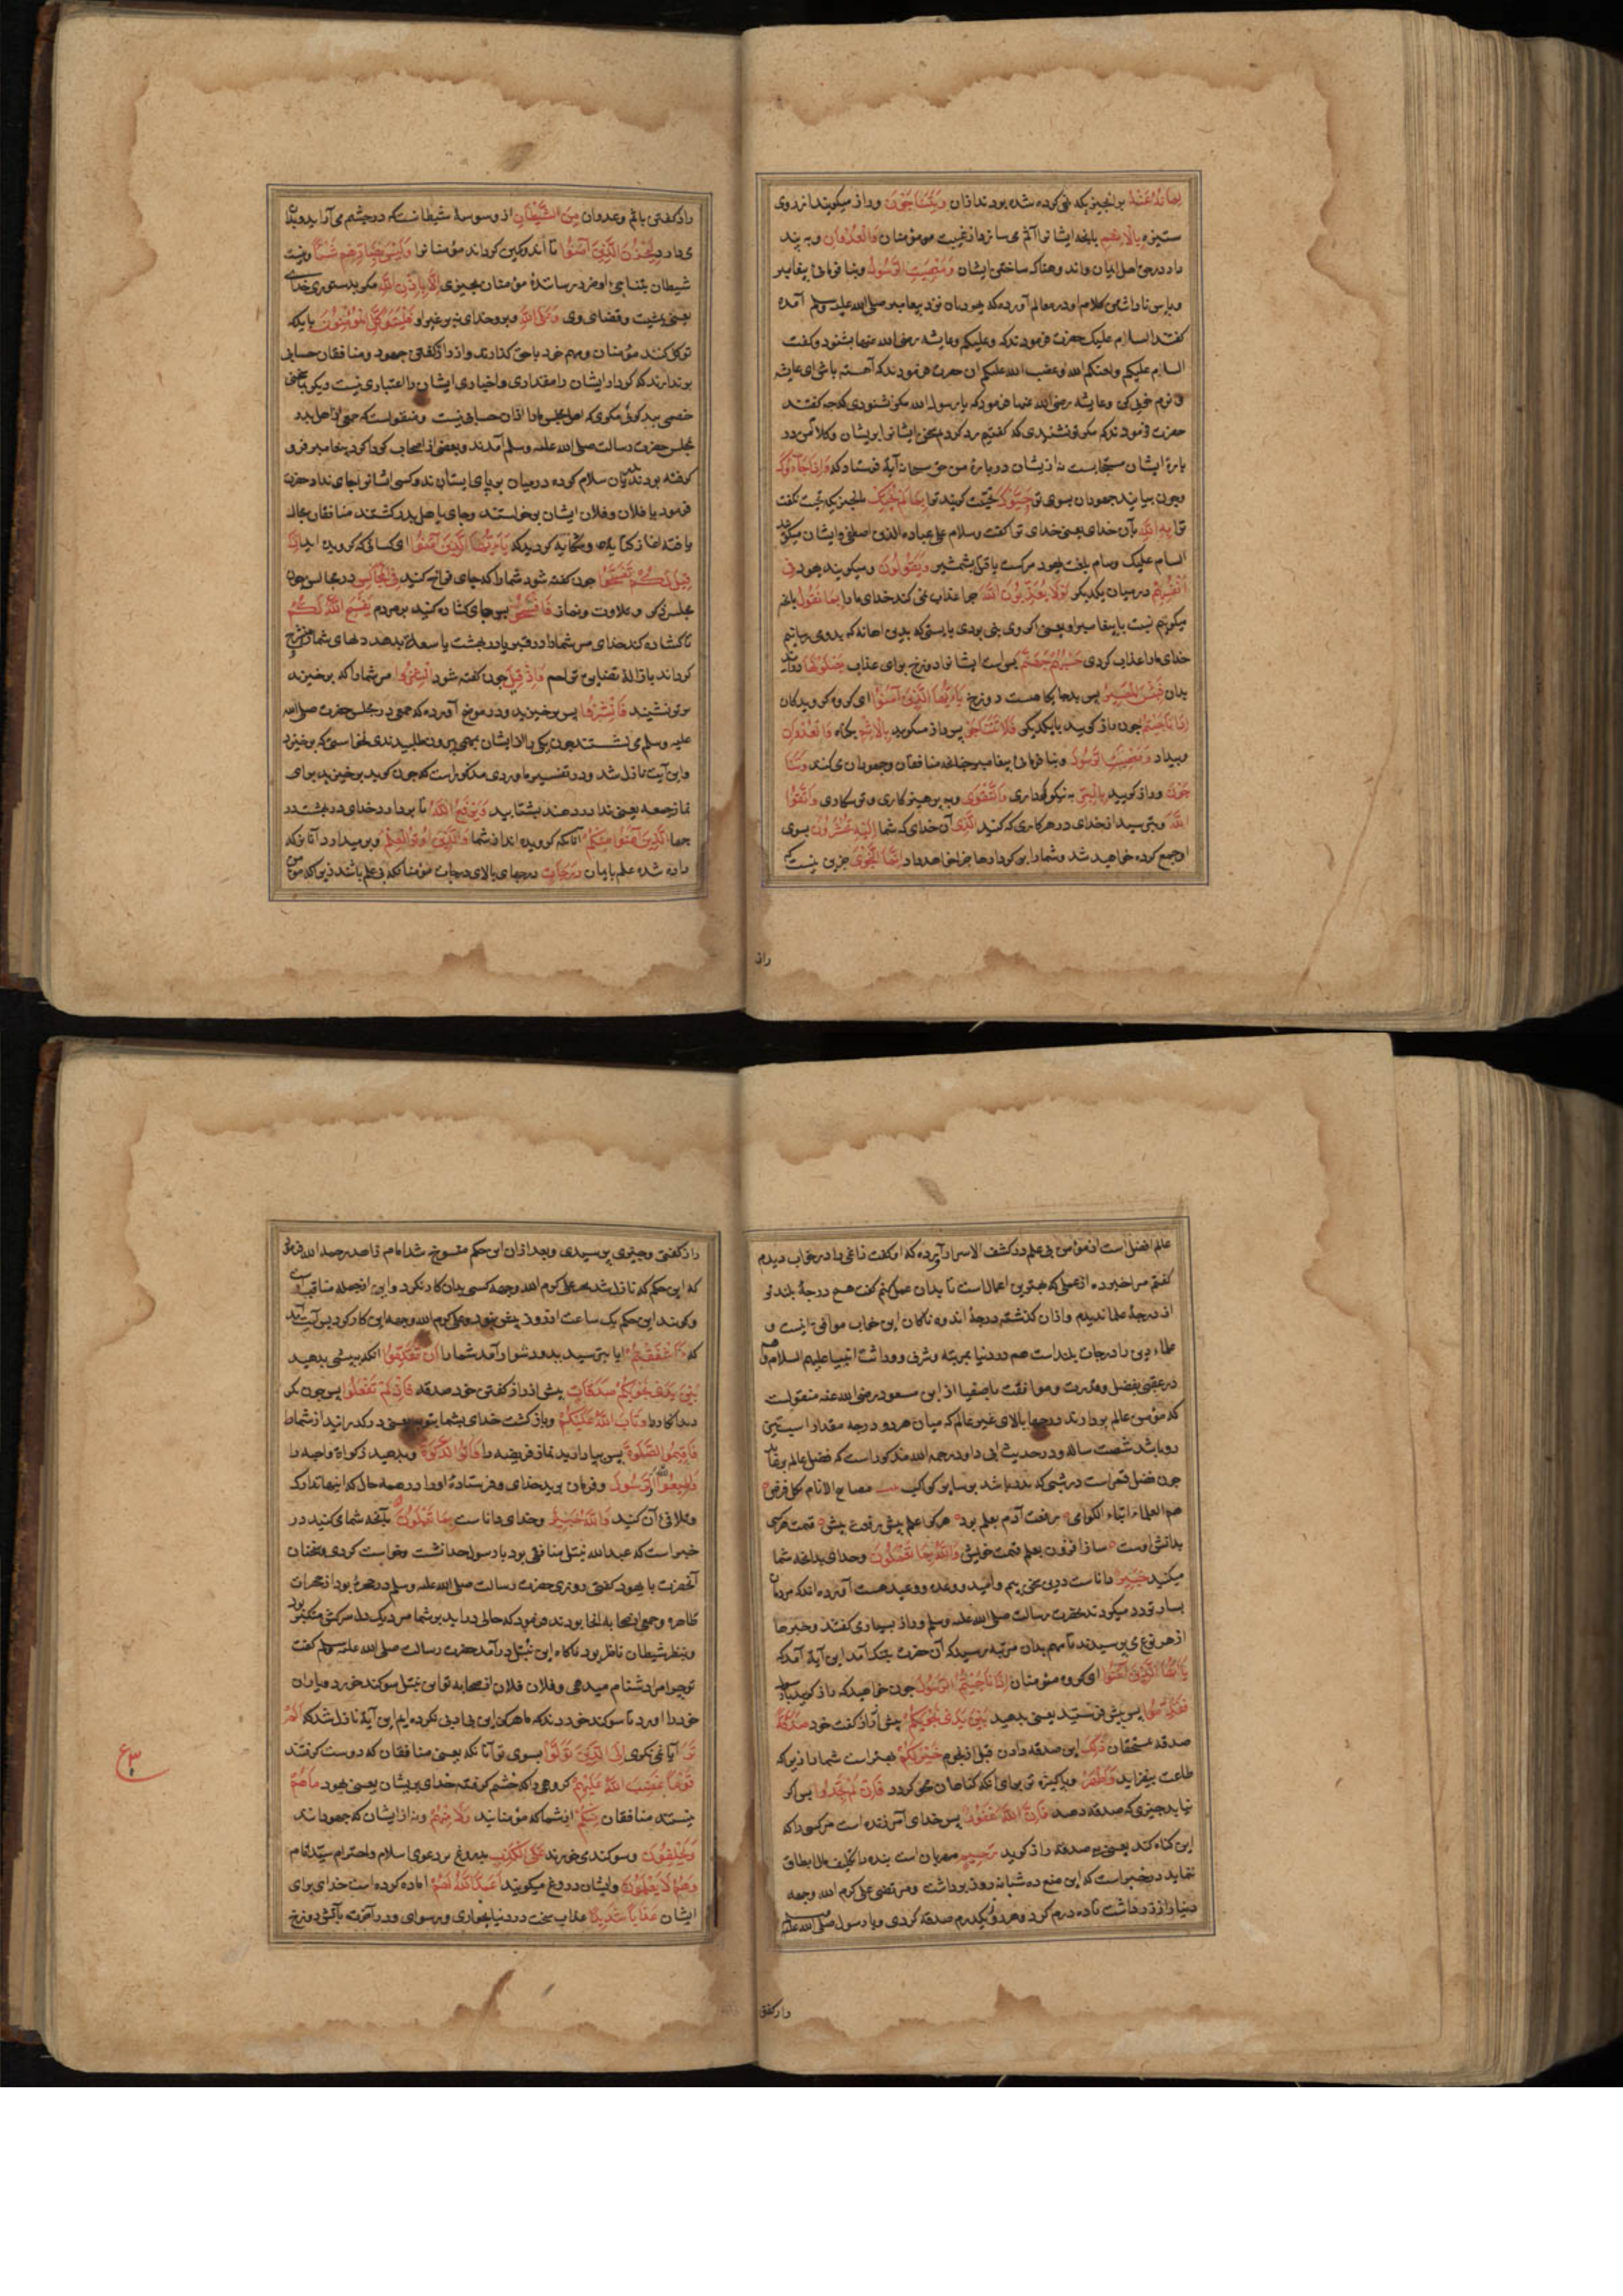 لما نهوا عنه برانچیزیکه نهی کرده شده بودند ازان وَيَتَنَاجَوْنَ وراز میکویند از روی
ستیزه بِالْاِثْمِ بانچه ایشانرا آثم می سازد از غیبت مومنان وَالْعُدْوَانِ وبه پند
داد درحق اهل ایمان واند وهناک ساختن ایشان وَمَعْصِيَتِ الرَّسُولِ وبنا فرمانئ پیغامبر
کلام او در معالم آورده که یهودان نزد پیغامبر صلی الله علیه وسلم آمده
کفتند السام علیک حضرت فرمودند که وعلیکم وعایشه رضی الله عنها بشنود وکفت
السام علیکم ولعنکم الله وغضب الله علیکم ان حضرت فرمودند که آهسته باش ای عایشه
و نرم خوئی کن وعایشه رضی الله عنها فرمود که یا رسول الله مکر نشنودی که چه کفتند
حضرت فرمودند که مکر تو نشنیدی که کفتم رد کردم سخن ایشانرا بریشان وکلام من در
بارهٔ ایشان مستجابست نه ازیشان دربارهٔ من حق سبحانه آیة فرستاد که وَاِذَا جَآءُوكَ
وچون بیایند جهودان بسوی تو حَيَّوْكَ تحیت کویند ترا بِمَا لَمْ يُحَيِّكَ بانچیزیکه تحیت نکفت
ترا بِهِ اللّٰهُ بآن خدای یعنی خدای ترا کفت وسلام علی عباده الذین اصطفی وایشان میکویند
السام علیک وسام بلغت یهود مرکست یا قتل بشمشیر وَيَقُولُونَ ومیکویند یهود فِي
اَنْفُسِهِمْ درمیان یکدیکر لَوْلَا يُعَذِّبُنَا اللّٰهُ چرا عذاب نمی کند خدای مارا بِمَا نَقُولُ بانچه
میکوئیم نسبت با پیغامبر او یعنی اکر وی نبی بودی بایستی که بدین اهانه که بدو می رسانیم
خدای مارا عذاب کردی حَسْبُهُمْ جَهَنَّمُ بس است ایشانرا دوزخ برای عذاب يَصْلَوْنَهَا درآیند
بدان فَبِئْسَ الْمَصِيرُ پس بدجایکاهست دوزخ يَا اَيُّهَا الَّذِينَ آمَنُوا ای کروه کرویدکان
اِذَا تَنَاجَيْتُمْ چون راز کویید با یکدیکر فَلَا تَتَنَاجَوْا پس راز مکویید بِالْاِثْمِ بکناه وَالْعُدْوَانِ
وبیداد وَمَعْصِيَتِ الرَّسُولِ وبنا فرمانئ پیغامبر چنانچه منافقان وجهودان می کنند وَتَنَا
جَوْا وراز کویید بِالْبِرِّ به نیکوکرداری وَالتَّقْوٰى وبه پرهیزکاری وترسکاری وَاتَّقُوا
اللّٰهَ وبترسید از خدای در هر کاری که کنید الَّذِي آن خدای که شما اِلَيْهِ تُحْشَرُونَ بسوی
او جمع کرده خواهید شد وشمارا برکردارها جزا خواهد داد اِنَّمَا النَّجْوٰى جزین نیست که
راز
راز کفتن باثم وعدوان مِنَ الشَّيْطَانِ از وسوسهٔ شیطانست که درچشم می آراید وبران
می دارد لِيَحْزُنَ الَّذِينَ آمَنُوا تا اندوهکین کرداند مؤمنانرا وَلَيْسَ بِضَارِّهِمْ شَيْئًا ونیست
شیطان یا تناجئ او ضرر رسانندهٔ مؤمنان بچیزی اِلَّا بِاِذْنِ اللّٰهِ مکر بدستوری خدای
یعنی بمشیت وقضای وی وَعَلَى اللّٰهِ وبر وخدای نه برغیر او فَلْيَتَوَكَّلِ الْمُؤْمِنُونَ باید که
توکل کنند مؤمنان ومهم خود با حق کذارند واز راز کفتن جهود ومنافقان حسابی
برندارند که کردار ایشان را مقداری واخبار ایشان را اعتباری نیست
مکوی که اهل مجلس مارا ازان حسابی نیست ومنقولست که جمعی از اهل بدر
بمجلس حضرت رسالت صلی الله علیه وسلم آمدند وبعضی از اصحاب کرداکرد پیغامبر فرو
کرفته بودند بدریان سلام کرده درمیان بر پای ایستادند وکسی ایشانرا جای نداد حضرت
فرمود یا فلان وفلان ایشان برخواستند وجای باهل بدر کشتند منافقان مجال
یافته آغاز کردند که يَا اَيُّهَا الَّذِينَ آمَنُوا ای کسانی که کرویده اید اِذَا
قِيلَ لَكُمْ تَفَسَّحُوا چون کفته شود شمارا که جای فراخ کنید فِي الْمَجَالِسِ درمجالس چون
مجلس ذکر وتلاوت ونماز فَافْسَحُوا پس جای کشاده کنید برمردم يَفْسَحِ اللّٰهُ لَكُمْ
تا کشاده کند خدای مر شمارا در قبر یا در بهشت یا سعة بدهد دلهای شمارا
کرداند فَاِذَا قِيلَ چون کفته شود انْشُزُوا مر شمارا که برخیزید
فَانْشُزُوا پس برخیزید ودر موضح آورده که جمعی در مجلس حضرت صلی الله
علیه وسلم می نشستند چون یکی بالا ایشان بمهمی بیرون طلبیدندی نخواستی که برخیزد
واین آیت نازل شد ودر تفسیر ماوردی مذکور است که چون کوید برخیزید برای
نماز جمعه یعنی ندا دردهند بشتابید يَرْفَعِ اللّٰهُ تا بردارد خدای دربهشت در
جها الَّذِينَ آمَنُوا مِنْكُمْ آنانکه کرویده اند از شما وَالَّذِينَ اُوتُوا الْعِلْمَ وبرمیدارد آنانرا که
داده شده علم با ایمان دَرَجَاتٍ درجهای بالای درجات مؤمنانکه بی علم باشند زیراکه مؤمن
عالم افضل است از مؤمن بی علم در کشف الاسرار آورده که اوکفت زاغی را درخواب دیدم
کفتم مرا خبر ده از عملی که بهترین اعمال است تا بدان عمل کنم کفت هیچ درجهٔ بلندتر
از درجهٔ علما ندیدم وازان کذشته درجهٔ اندوهناکان این خواب موافق اینست و
علماء دین را درجات بلند است هم در دنیا بمرتبه وشرف ووراثت انبیا علیهم السلام وهم
درعقبی بفضل وقدرت وموافقت با اصفیا از ابن مسعود رضی الله عنه منقولست
که مؤمن عالم بردارند درجها بالای غیر عالم که میان هر دو درجه مقدار
شصت ساله ودر حدیث ابی داود رحمه الله مذکور است که فضل عالم بر عابد
چون فضل قمر است درشبی که بدر باشد بر سایر کواکب
هم العلماء ابناء الکرام رفعت آدم بعلم بود هر کرا علم بیش رفعت بیش قیمت هرکس
بدانش اوست ساز افزون بعلم قیمت خویش وَاللّٰهُ بِمَا تَعْمَلُونَ وخدای بدانچه شما
میکنید خَبِيرٌ داناست درین سخن بیم وامید ووعده ووعید هست آورده اند که مردمان
بسیار تردد میکردند بحضرت رسالت صلی الله علیه وسلم وراز بسیاری کفتند وخبرها
از هر نوع می پرسیدند تا مهم بدان مرتبه رسید که آن حضرت بتنک آمد این آیة آمد که
يَا اَيُّهَا الَّذِينَ آمَنُوا ای کروه مؤمنان اِذَا نَاجَيْتُمُ الرَّسُولَ چون خواهید که راز کویید با رسول
فَقَدِّمُوا پس پیش فرستید یعنی بدهید بَيْنَ يَدَيْ نَجْوٰيكُمْ پیش از راز کفت خود صَدَقَةً
صدقه بمستحقان ذٰلِكَ این صدقه دادن قبل از نجوی خَيْرٌ لَكُمْ بهتر است شمارا زیراکه
طاعت بیفزاید وَاَطْهَرُ وپاکیزه تر برای آنکه کناهان محو کردد فَاِنْ لَمْ تَجِدُوا پس اکر
نیابید چیزی که صدقه دهید فَاِنَّ اللّٰهَ غَفُورٌ پس خدای آمرزنده است مر کسی را که
این کناه کند یعنی بی صدقه راز کوید رَحِيمٌ مهربان است بنده را تکلیف مالایطاق
ننماید درخبر است که این منع ده شبانه روز برداشت ومرتضی علی کرم الله وجهه
دینار از زر داشت تا ده درم کرد وهر روز یکدرم صدقه کردی وبا رسول صلی الله علیه
راز کفتن
راز کفتی وچیزی پرسیدی وبعد ازان این حکم منسوخ شد امام زاهد رحمه الله فرمود
که این حکم که نازل شد بجز علی کرم الله وجهه کسی بدان کار نکرد واین ازجمله مناقب
وکویند این حکم یک ساعت از روز پیش نبود وعلی کرم الله وجهه این کار کرد پس آیت آمد
که ءَاَشْفَقْتُمْ ایا بترسید بدو دشوار آمد شمارا اَنْ تُقَدِّمُوا آنکه پیش بدهید
بَيْنَ يَدَيْ نَجْوٰيكُمْ صَدَقَاتٍ پیش از راز کفتن خود صدقه فَاِذْ لَمْ تَفْعَلُوا پس چون نکر
دید آن کار را وَتَابَ اللّٰهُ عَلَيْكُمْ وباز کشت خدای بشما بتوبه یعنی درکذرانید از شما
فَاَقِيمُوا الصَّلٰوةَ پس بپا دارید نماز فریضه را وَاٰتُوا الزَّكٰوةَ وبدهید زکواة واجبه را
وَاَطِيعُوا اللّٰهَ وَرَسُولَهُ وفرمان برید خدای وفرستادهٔ اورا درهمه حال که اینها تدارک
وتلافئ آن کنید وَاللّٰهُ خَبِيرٌ وخدای داناست بِمَا تَعْمَلُونَ بآنچه شما می کنید در
خبر است که عبدالله نبتل منافقی بود با رسول خدا نشست وخواست کردی وسخنان
آنحضرت با یهود کفتی روزی حضرت رسالت صلی الله علیه وسلم در حجرهٔ بود از حجرات
طاهره وجمعی از صحابه آنجا بودند فرمود که حالی درآید بر شما مردی که دل سرکش متکبر
وبنظر شیطان ناظر بود ناکاه ابن نبتل درآمد حضرت رسالت صلی الله علیه وسلم کفت
تو چرا مرا دشنام میدهی وفلان فلان از صحابه تو ابن نبتل سوکند خورد ویاران
خود را آورد تا سوکند خوردند که ما هرکز این بی ادبی نکرده ایم این آیة نازل شد که اَلَمْ
تَرَ آیا نمی نکری اِلَى الَّذِينَ تَوَلَّوْا بسوی آنانکه یعنی منافقان که دوست کرفتند
قَوْمًا غَضِبَ اللّٰهُ عَلَيْهِمْ کروهی را که خشم کرفته خدای بریشان یعنی یهود مَا هُمْ
نیستند منافقان مِنْكُمْ از شما که مؤمنانید وَلَا مِنْهُمْ ونه از ایشان که جهودانند
وَيَحْلِفُونَ وسوکند می خورند عَلَى الْكَذِبِ بدروغ بر دعوی اسلام واحترام سیّد انام
وَهُمْ يَعْلَمُونَ وایشان دروغ میکویند اَعَدَّ اللّٰهُ لَهُمْ آماده کرده است خدای برای
ایشان عَذَابًا شَدِيدًا عذاب سخت دردنیا بخواری ورسوای ودر آخرت بآتش دوزخ